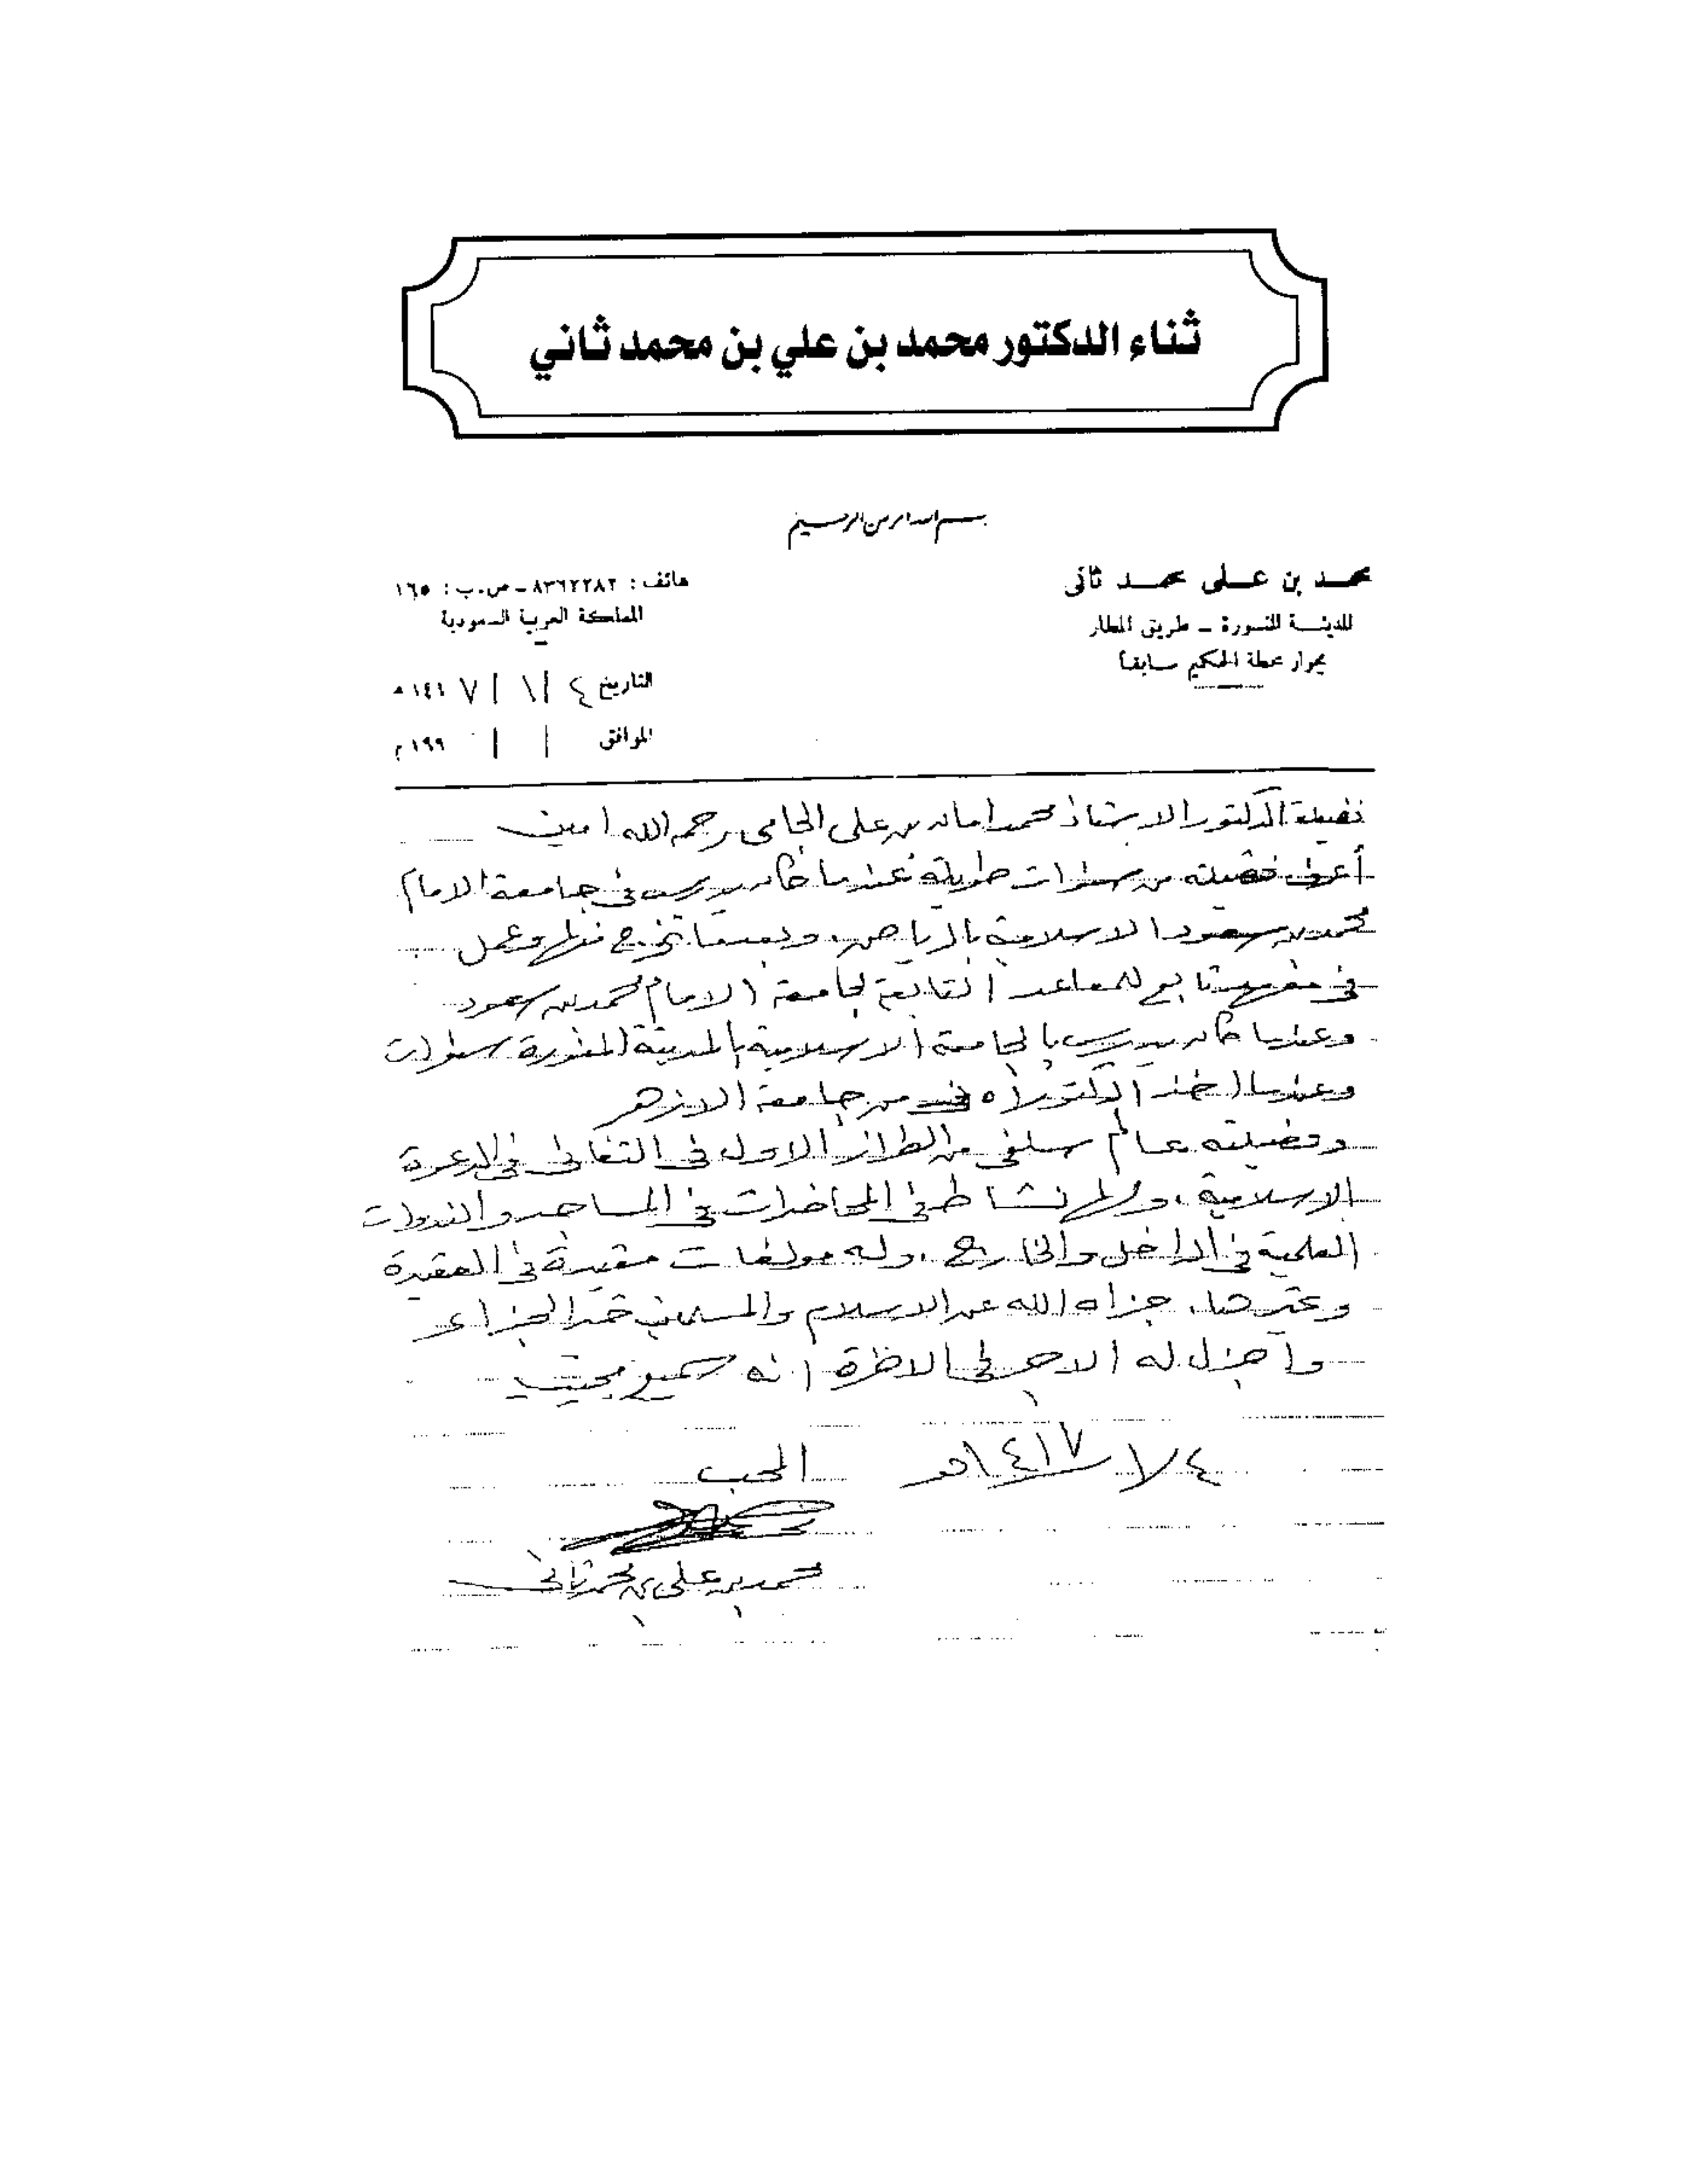 ثناء الدكتور محمد بن علي بن محمد ثاني
بسم الله الرحمن الرحيم
محمد بن على محمد ثانى
المدينة المنورة - طريق المطار
بجوار محطة الحكيم سابقاً
هاتف : ٨٣٦٢٢٨٢ - ص.ب : ١٦٥
المملكة العربية السعودية
التاريخ ٤ / ١ / ١٤١٧ هـ
الموافق / / ١٩٩ م
فضيلة الدكتور الاستاذ محمد امان بن على الجامى رحمه الله امين
أعرف فضيلته من سنوات طويلة عندما كان يدرس فى جامعة الامام
محمد بن سعود الاسلامية بالرياض، وبعدما تخرج منها وعمل
فى تابع للمعاهد التابعة لجامعة الامام محمد بن سعود
وعندما كان يدرس بالجامعة الاسلامية بالمدينة المنورة سنوات
وعندما اخذ الدكتوراه من جامعة الازهر
وفضيلته عالم سلفي من الطراز الاول فى التفانى فى الدعوة
الاسلامية، وله نشاط فى المحاضرات فى المساجد والندوات
العلمية فى الداخل والخارج، وله مولفات مفيدة فى العقيدة
وغيرها، جزاه الله عن الاسلام والمسلمين خير الجزاء
واجزل له الاجر فى الاخرة انه سميع مجيب
٤ / ١ / ١٤١٧هـ المحب
محمد بن على بن محمد ثانى